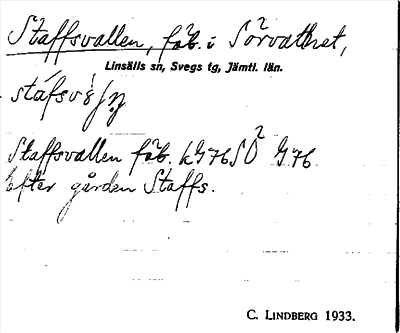 Staffsvallen, fäb. i Sörvattnet,
Linsälls sn, Svegs tg, Jämtl. län.
Staffsvallen fäb. LG76SO G76
Efter gården Staffs.
C. LINDBERG 1933.